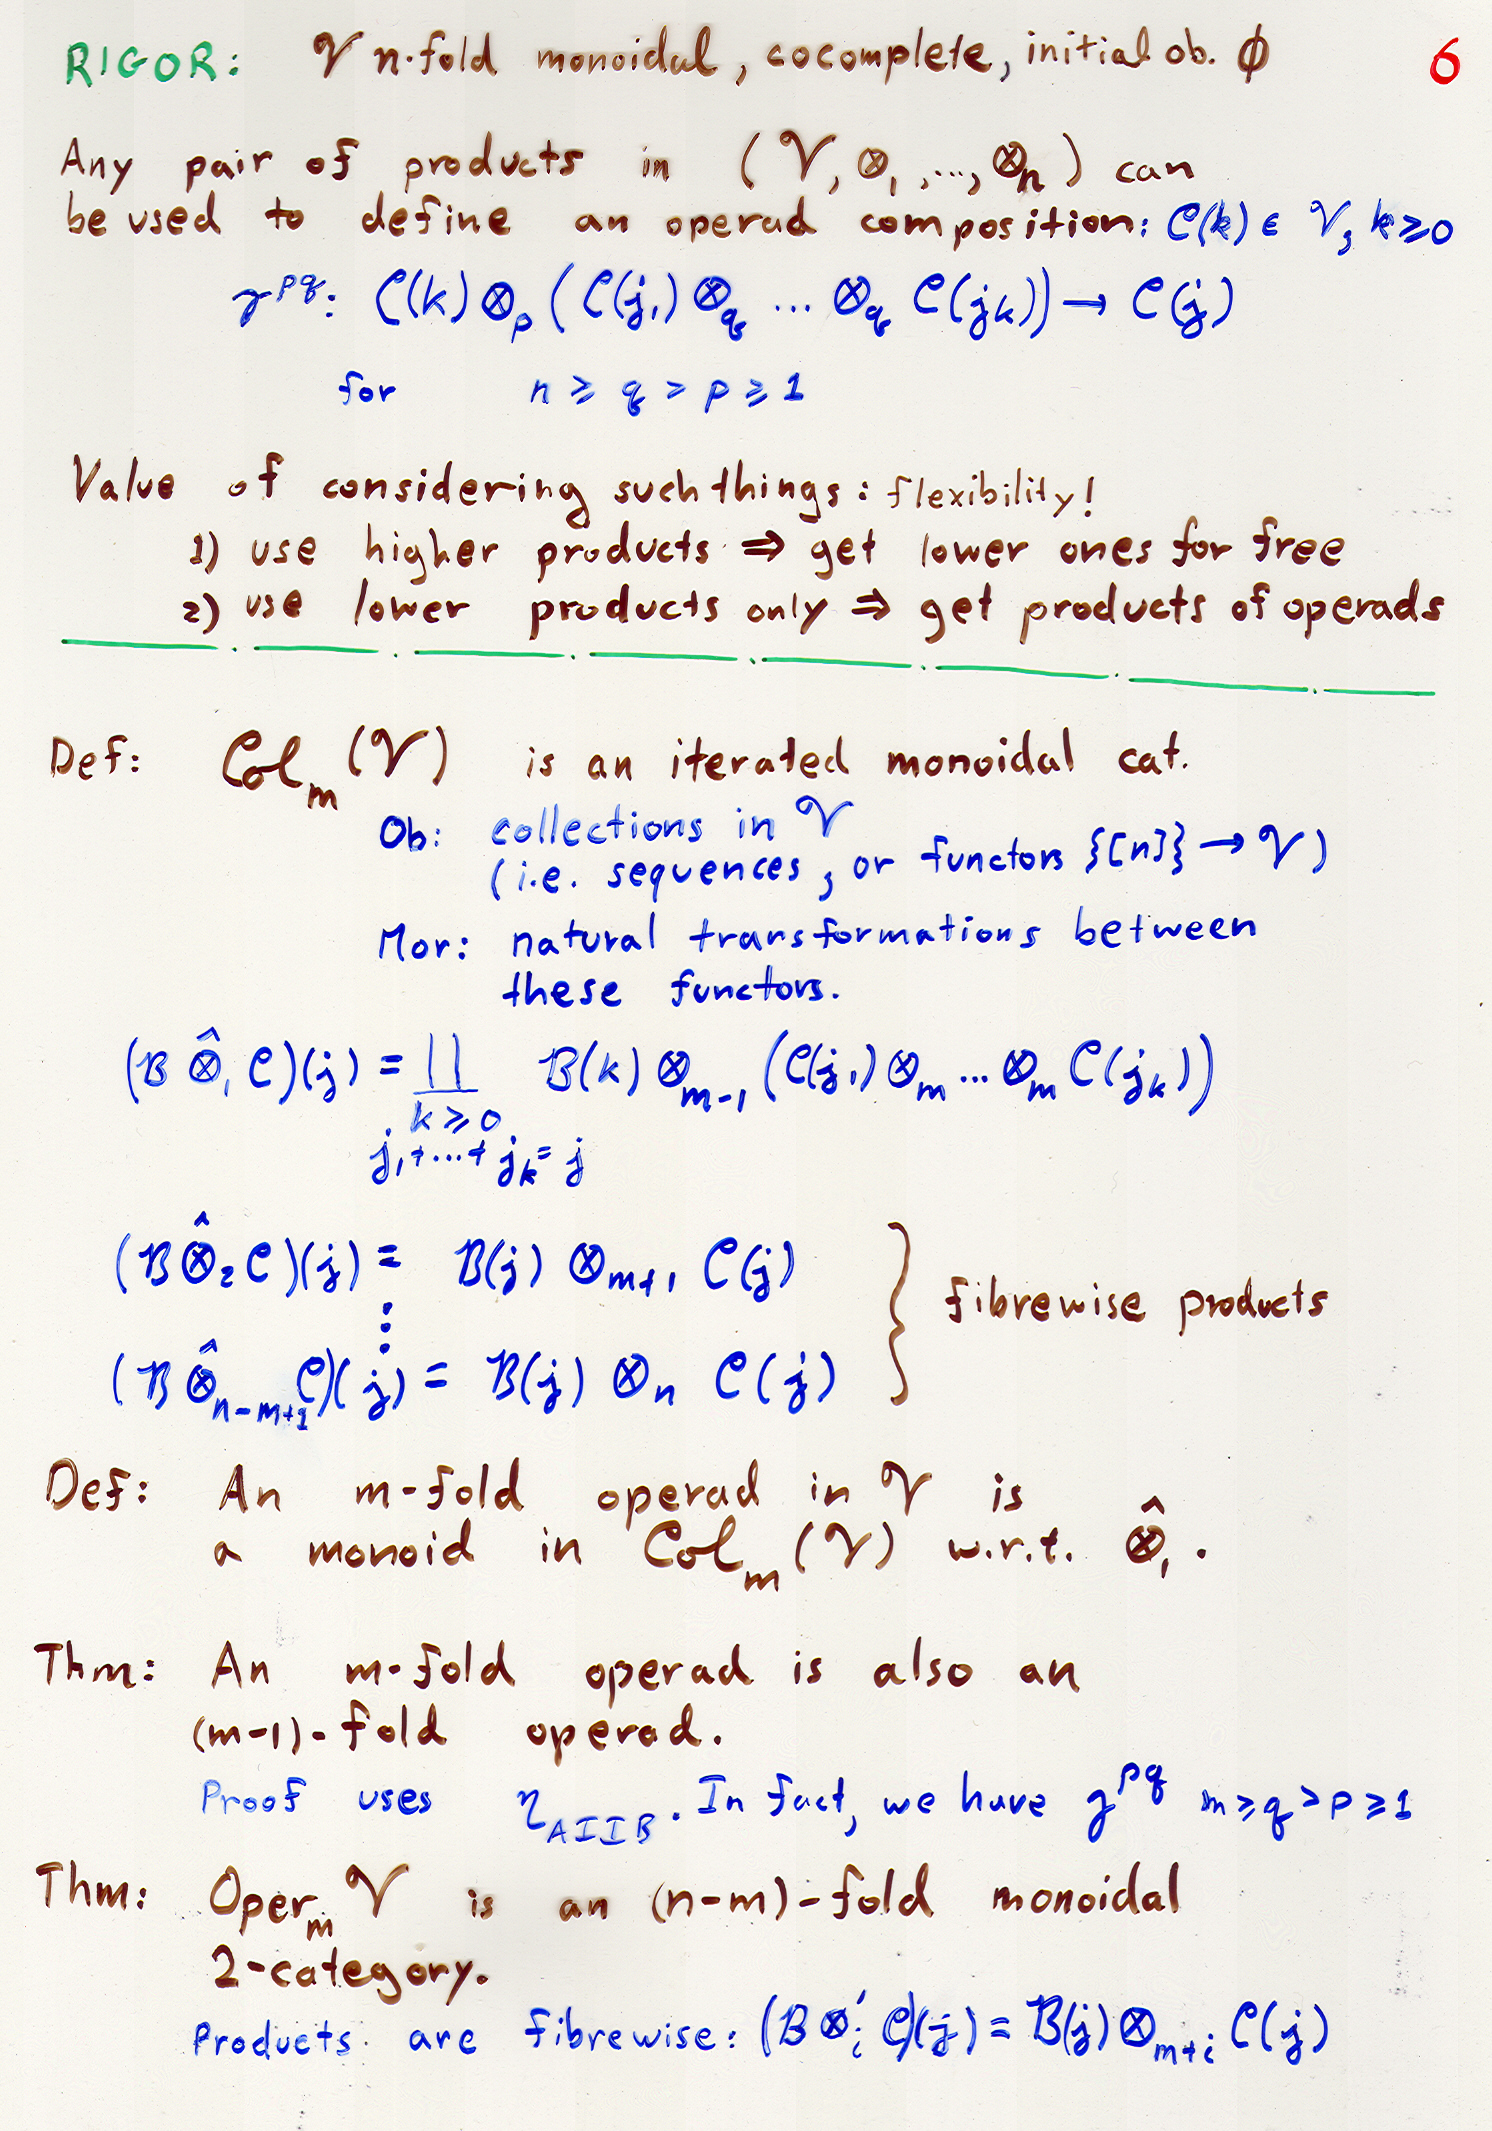 RIGOR: 𝒱 n-fold monoidal, cocomplete, initial ob. ∅
6
Any pair of products in (𝒱, ⊗₁, ..., ⊗ₙ) can
be used to define an operad composition: 𝒞(k) ∈ 𝒱, k ≥ 0
γ^{pq}: 𝒞(k) ⊗_p (𝒞(j₁) ⊗_q ... ⊗_q 𝒞(j_k)) → 𝒞(j)
for n ≥ q > p ≥ 1
Value of considering such things: flexibility!
1) use higher products ⇒ get lower ones for free
2) use lower products only ⇒ get products of operads
Def: Col_m (𝒱) is an iterated monoidal cat.
Ob: collections in 𝒱
(i.e. sequences, or functors {[n]} → 𝒱)
Mor: natural transformations between
these functors.
(ℬ ⊗̂₁ 𝒞)(j) = ∐ ℬ(k) ⊗_{m-1} (𝒞(j₁) ⊗_m ... ⊗_m 𝒞(j_k))
k ≥ 0
j₁+...+j_k = j
(ℬ ⊗̂₂ 𝒞)(j) = ℬ(j) ⊗_{m+1} 𝒞(j)
⋮
fibrewise products
(ℬ ⊗̂_{n-m+1} 𝒞)(j) = ℬ(j) ⊗_n 𝒞(j)
Def: An m-fold operad in 𝒱 is
a monoid in Col_m (𝒱) w.r.t. ⊗̂₁.
Thm: An m-fold operad is also an
(m-1)-fold operad.
Proof uses η_{AIIB}. In fact, we have γ^{pq} m ≥ q > p ≥ 1
Thm: Oper_m 𝒱 is an (n-m)-fold monoidal
2-category.
Products are fibrewise: (ℬ ⊗'_i 𝒞)(j) = ℬ(j) ⊗_{m+i} 𝒞(j)